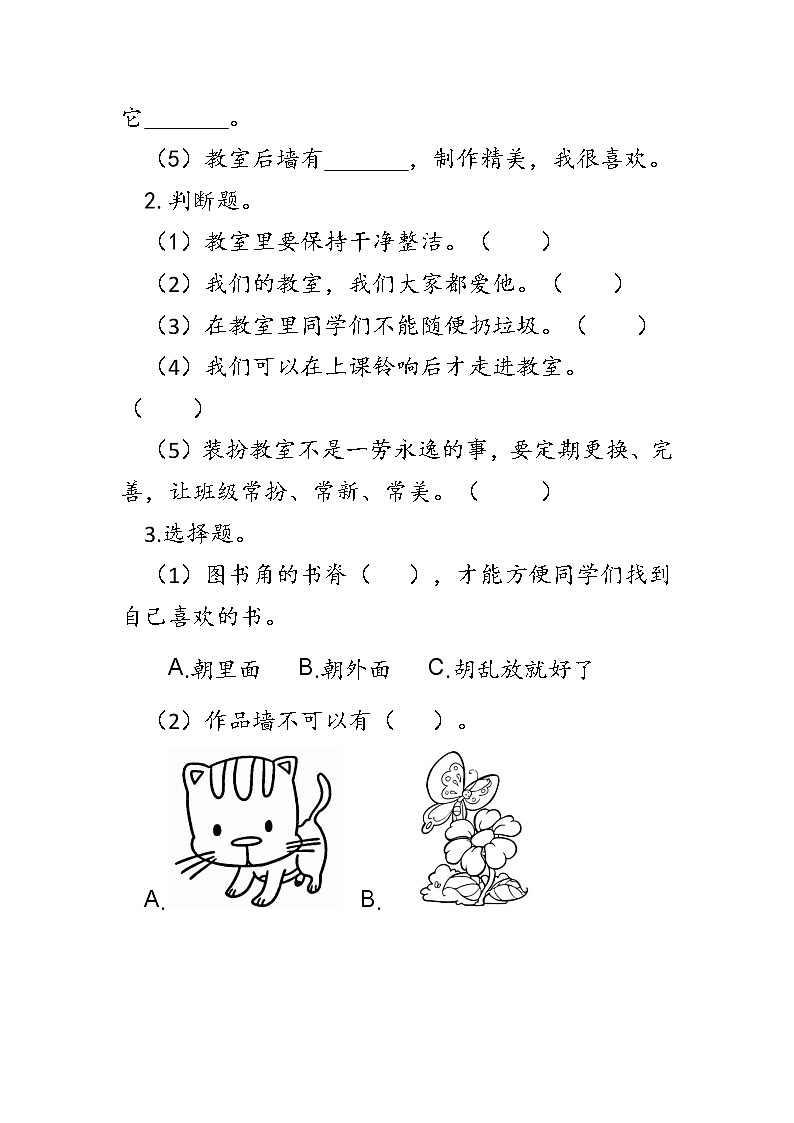 它_______。
（5）教室后墙有_______，制作精美，我很喜欢。
2. 判断题。
（1）教室里要保持干净整洁。（  ）
（2）我们的教室，我们大家都爱他。（  ）
（3）在教室里同学们不能随便扔垃圾。（  ）
（4）我们可以在上课铃响后才走进教室。
（  ）
（5）装扮教室不是一劳永逸的事，要定期更换、完
善，让班级常扮、常新、常美。（  ）
3.选择题。
（1）图书角的书脊（  ），才能方便同学们找到
自己喜欢的书。
A.朝里面 B.朝外面 C.胡乱放就好了
（2）作品墙不可以有（  ）。
A. B.